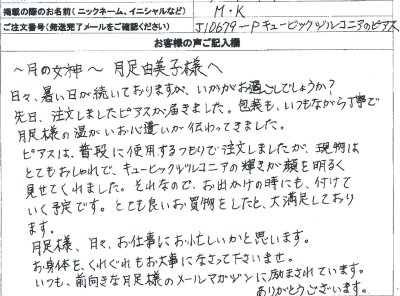 掲載の際のお名前(ニックネーム、イニシャルなど) M・K
ご注文番号(発送完了メールをご確認ください) J10679-P キュービックジルコニアのピアス
お客様の声ご記入欄
〜月の女神〜 月足由美子様へ
日々、暑い日が続いておりますが、いかがお過ごしでしょうか?
先日、注文しましたピアスが届きました。包装も、いつもながら丁寧で
月足様の温かいお心遣いが伝わってきました。
ピアスは、普段に使用するつもりで注文しましたが、現物は
とてもおしゃれで、キュービックジルコニアの輝きが顔を明るく
見せてくれました。それなので、お出かけの時にも、付けて
いく予定です。とても良いお買物をしたと、大満足しており
ます。
月足様、日々、お仕事にお忙しいかと思います。
お身体を、くれぐれもお大事になさって下さいませ。
いつも、前向きな月足様のメールマガジンに励まされています。
ありがとうございます。